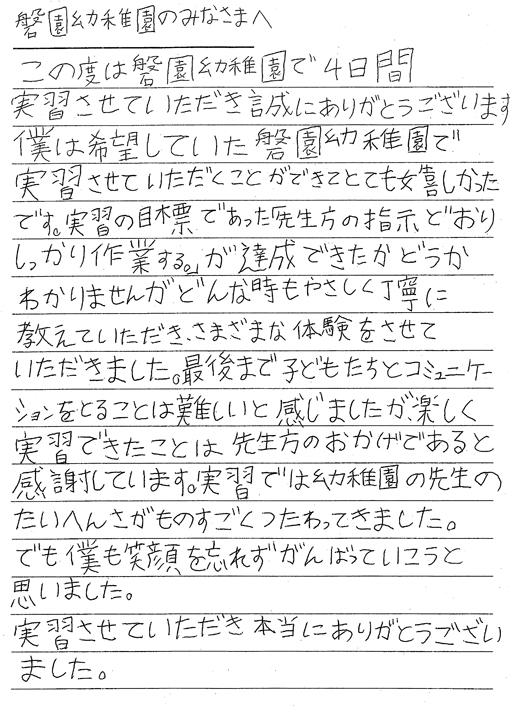 磐園幼稚園のみなさまへ
この度は磐園幼稚園で4日間
実習させていただき誠にありがとうございます
僕は希望していた磐園幼稚園で
実習させていただくことができてとても嬉しかった
です。実習の目標であった「先生方の指示どおり
しっかり作業する。」が達成できたかどうか
わかりませんがどんな時もやさしく丁寧に
教えていただき、さまざまな体験をさせて
いただきました。最後まで子どもたちとコミュニケー
ションをとることは難しいと感じましたが、楽しく
実習できたことは先生方のおかげであると
感謝しています。実習では幼稚園の先生の
たいへんさがものすごくつたわってきました。
でも僕も笑顔を忘れずがんばっていこうと
思いました。
実習させていただき本当にありがとうござい
ました。